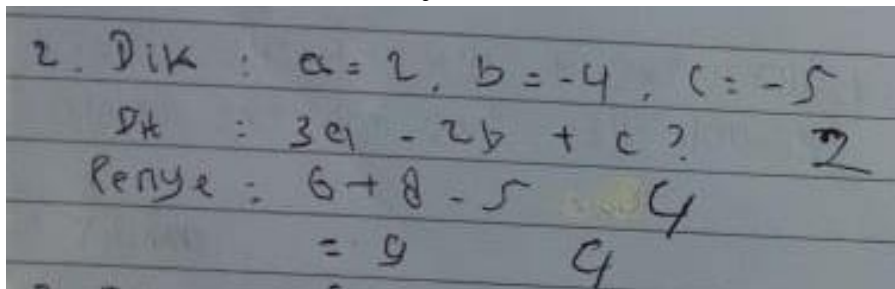 2. Dik : a = 2, b = -4, c = -5
Dit : 3a - 2b + c ? 2
Penye : 6 + 8 - 5 4
= 9 4